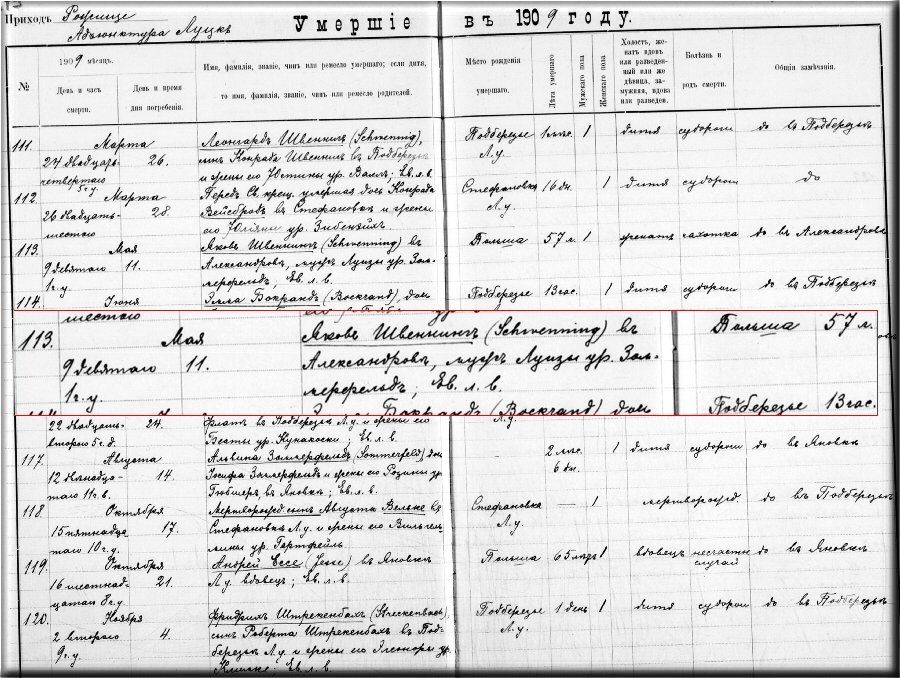 Приходъ Рожище
Адъюнктура Луцкъ
Умершіе въ 1909 году.
№
1909 мѣсяцъ.
День и часъ смерти.
День и время дня погребенія.
Имя, фамилія, званіе, чинъ или ремесло умершаго; если дитя,
то имя, фамилія, званіе, чинъ или ремесло родителей.
Мѣсто рожденія умершаго.
Лѣта умершаго
Мужскаго пола
Женскаго пола
Холостъ, женатъ вдовъ или разведенный или же дѣвица, замужняя, вдова или разведен.
Болѣзнь и родъ смерти.
Общія замѣчанія.
111. Марта Леонгардъ Швеннингъ (Schwenning), Подберезье 1 мѣс. 1 дитя судороги до въ Подберезьѣ
24 двадцать- 26. сынъ Конрада Швеннингъ въ Подберезьѣ Л.у.
четвертаго и жены его Юстины ур. ; Ев. л. в.
5 г. у.
112. Марта Передъ Св. крещ. умершая дочь Конрада Стефановка 16 дн. 1 дитя судороги до
26 двадцать- 28. Вейсбродъ въ Стефановкѣ и жены Л.у.
шестого его Юліяны ур.
113. Мая Яковъ Швеннингъ (Schwenning) въ Польша 57 л. 1 женатъ чахотка до въ Александровкѣ
9 девятаго 11. Александровкѣ, мужъ Луизы ур. Зом-
1 г. у. мерфельдъ; Ев. л. в.
114. Іюня Элла Бокрандъ (Bockrand), дочь Подберезье 13 час. 1 дитя судороги до въ Подберезьѣ
шестаго
113. Мая Яковъ Швеннингъ (Schwenning) въ Польша 57 л.
9 девятаго 11. Александровкѣ, мужъ Луизы ур. Зом-
1 г. у. мерфельдъ; Ев. л. в.
Бокрандъ (Bockrand) дочь Подберезье 13 час.
22 двадцать- 24. въ Подберезьѣ Л.у. и жены его Л.у.
второго 5 г. д. Беаты ур. ; Ев. л. в.
117. Августа Альвина Зоммерфельдъ (Sommerfeld) дочь 2 мѣс. 1 дитя судороги до въ Яновкѣ
12 двѣнадца- 14. Іосифа Зоммерфельдъ и жены его Розины ур. 6 дн.
таго 11 г. в. въ Яновкѣ; Ев. л. в.
118. Октября Мертворожд. сынъ Августа Вельке въ Стефановка — 1 мертворожд. до въ Подберезьѣ
15 пятнадца 17. Стефановкѣ Л.у. и жены его Вильгель- Л.у.
таго 10 г. у. мины ур. Гартфейль
119. Октября Андрей Ессе (Jesse) въ Яновкѣ Польша 65 лѣтъ 1 вдовецъ несчастн. случай до въ Яновкѣ
16 шестнад- 21. Л.у. вдовецъ; Ев. л. в.
цатаго 8 г. у.
120. Ноября Фридрихъ Штрекенбахъ (Streckenbach), Подберезье 1 день 1 дитя судороги до въ Подберезьѣ
2 второго 4. сынъ Роберта Штрекенбахъ въ Под- Л.у.
9 г. у. березьѣ Л.у. и жены его Элеоноры ур.
; Ев. л. в.